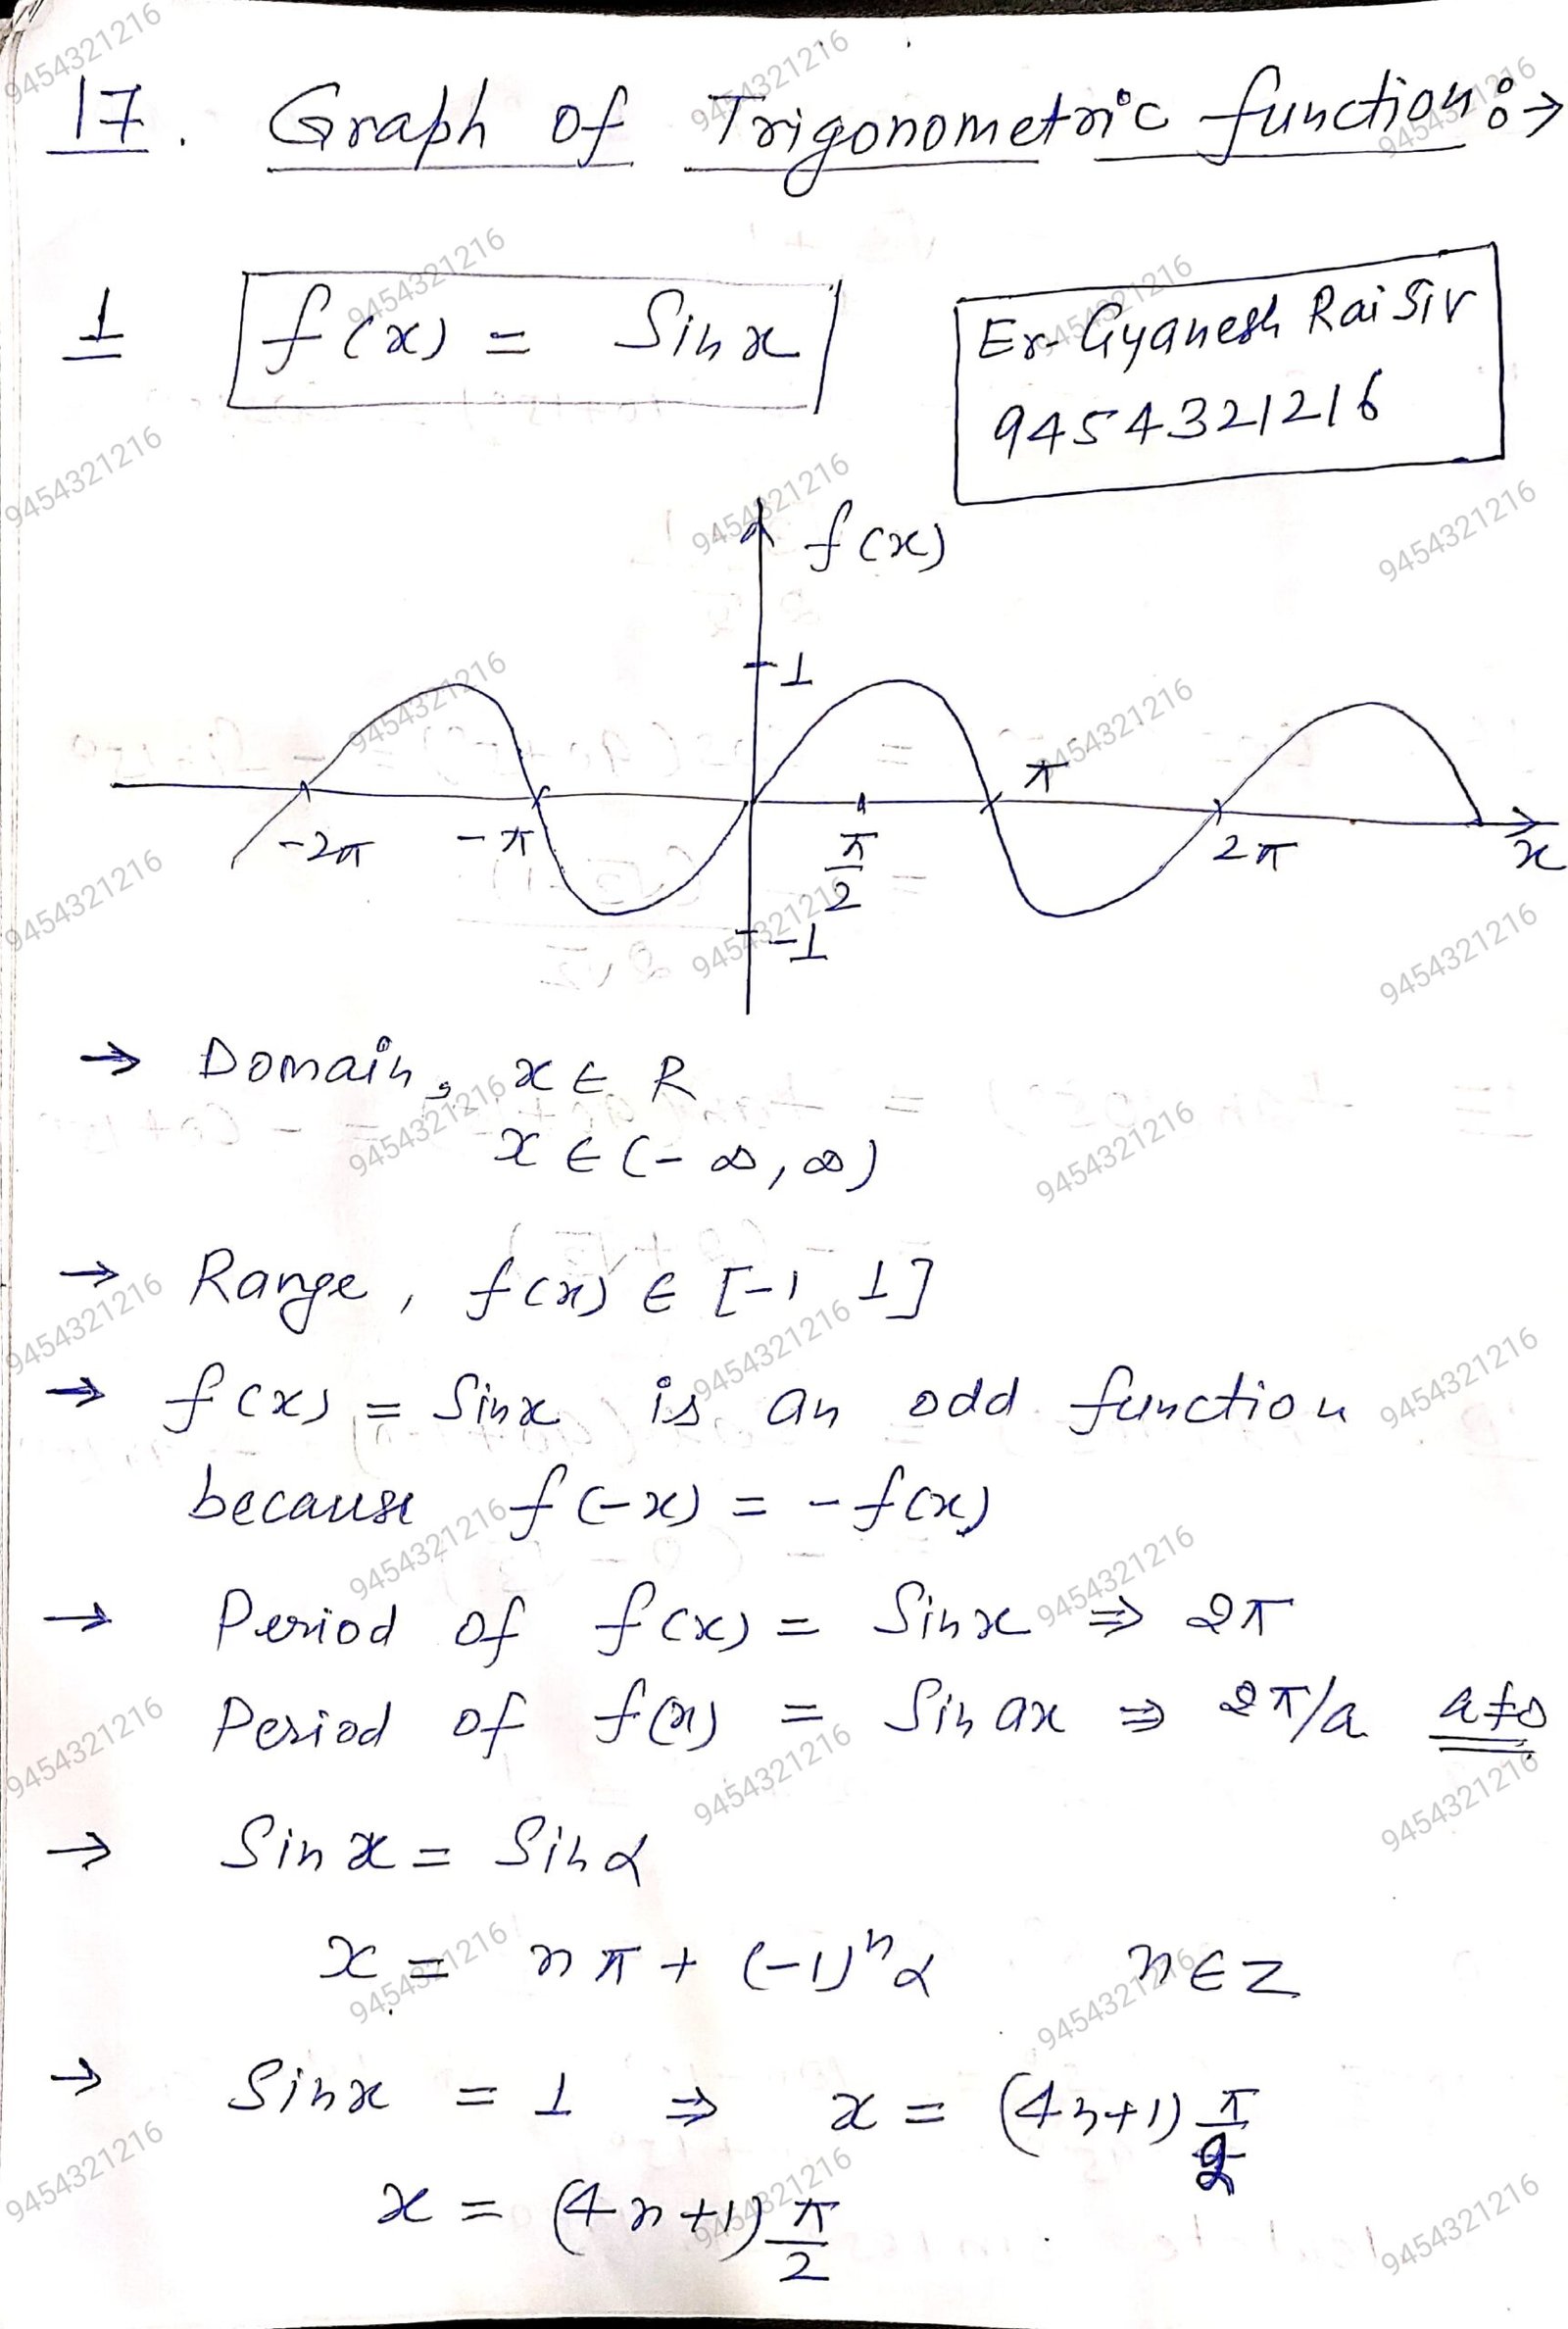 17. Graph of Trigonometric function :→
1 f(x) = Sinx
Er. Gyanesh Rai Sir
9454321216
f(x)
1
-2π -π π/2 π 2π x
-1
→ Domain, x ∈ R
x ∈ (-∞, ∞)
→ Range, f(x) ∈ [-1 1]
→ f(x) = Sinx is an odd function
because f(-x) = -f(x)
→ Period of f(x) = Sinx ⇒ 2π
Period of f(x) = Sin ax ⇒ 2π/a a≠0
→ Sin x = Sin α
x = nπ + (-1)ⁿ α n ∈ Z
→ Sinx = 1 ⇒ x = (4n+1) π/2
x = (4n+1) π/2
9454321216